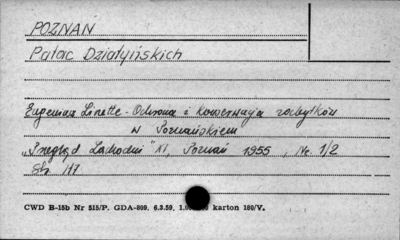 POZNAŃ
Pałac Działyńskich
Eugeniusz Linette - Ochrona i konserwacja zabytków
w Poznańskiem
"Przegląd Zachodni" XI, Poznań 1955, Nr. 1/2
Str. 117
CWD B-15b Nr 515/P. GDA-809. 6.3.59, 1.0 karton 180/V.